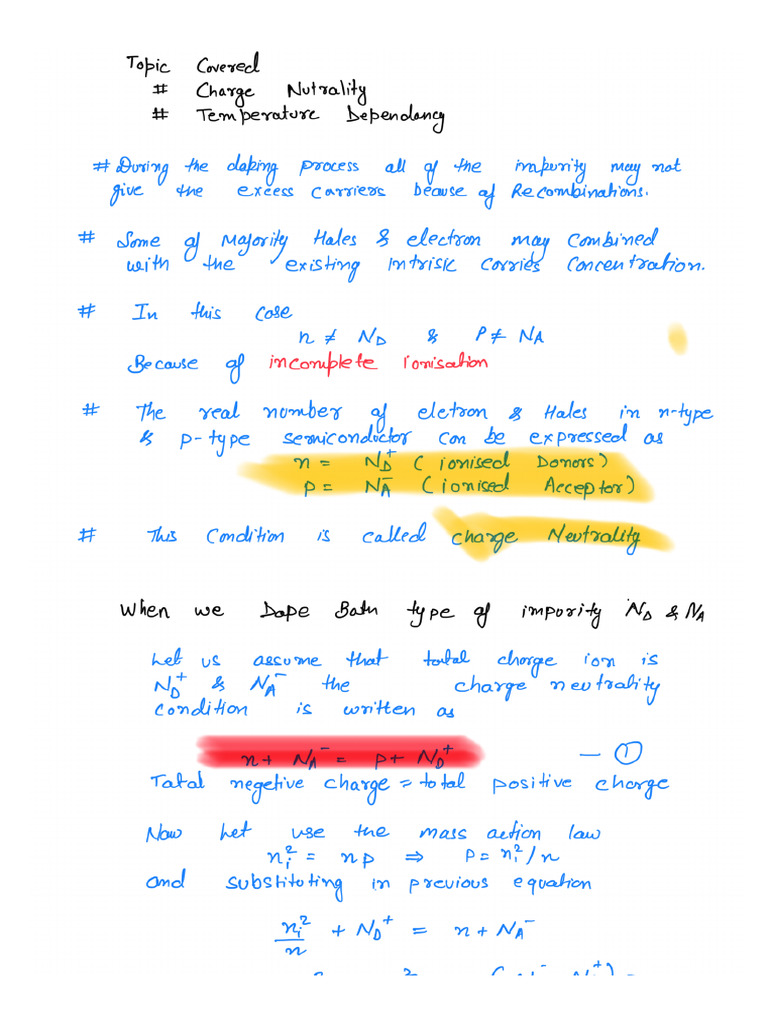 Topic Covered
# Charge Nutrality
# Temperature Dependancy
# During the doping process all of the impurity may not
give the excess carriers because of Recombinations.
# Some of Majority Holes & electron may combined
with the existing intrisic carries concentration.
# In this case
n ≠ N_D & P ≠ N_A
Because of incomplete ionisation
# The real number of eletron & Holes in n-type
& p-type semiconductor can be expressed as
n = N_D^+ (ionised Donors)
p = N_A^- (ionised Acceptor)
# This condition is called charge Neutrality
When we Dope Both type of impurity N_D & N_A
Let us assume that total charge ion is
N_D^+ & N_A^- the charge neutrality
condition is written as
n + N_A^- = p + N_D^+ — ①
Total negetive charge = total positive charge
Now Let use the mass action law
n_i^2 = np ⇒ p = n_i^2/n
and substituting in previous equation
n_i^2/n + N_D^+ = n + N_A^-